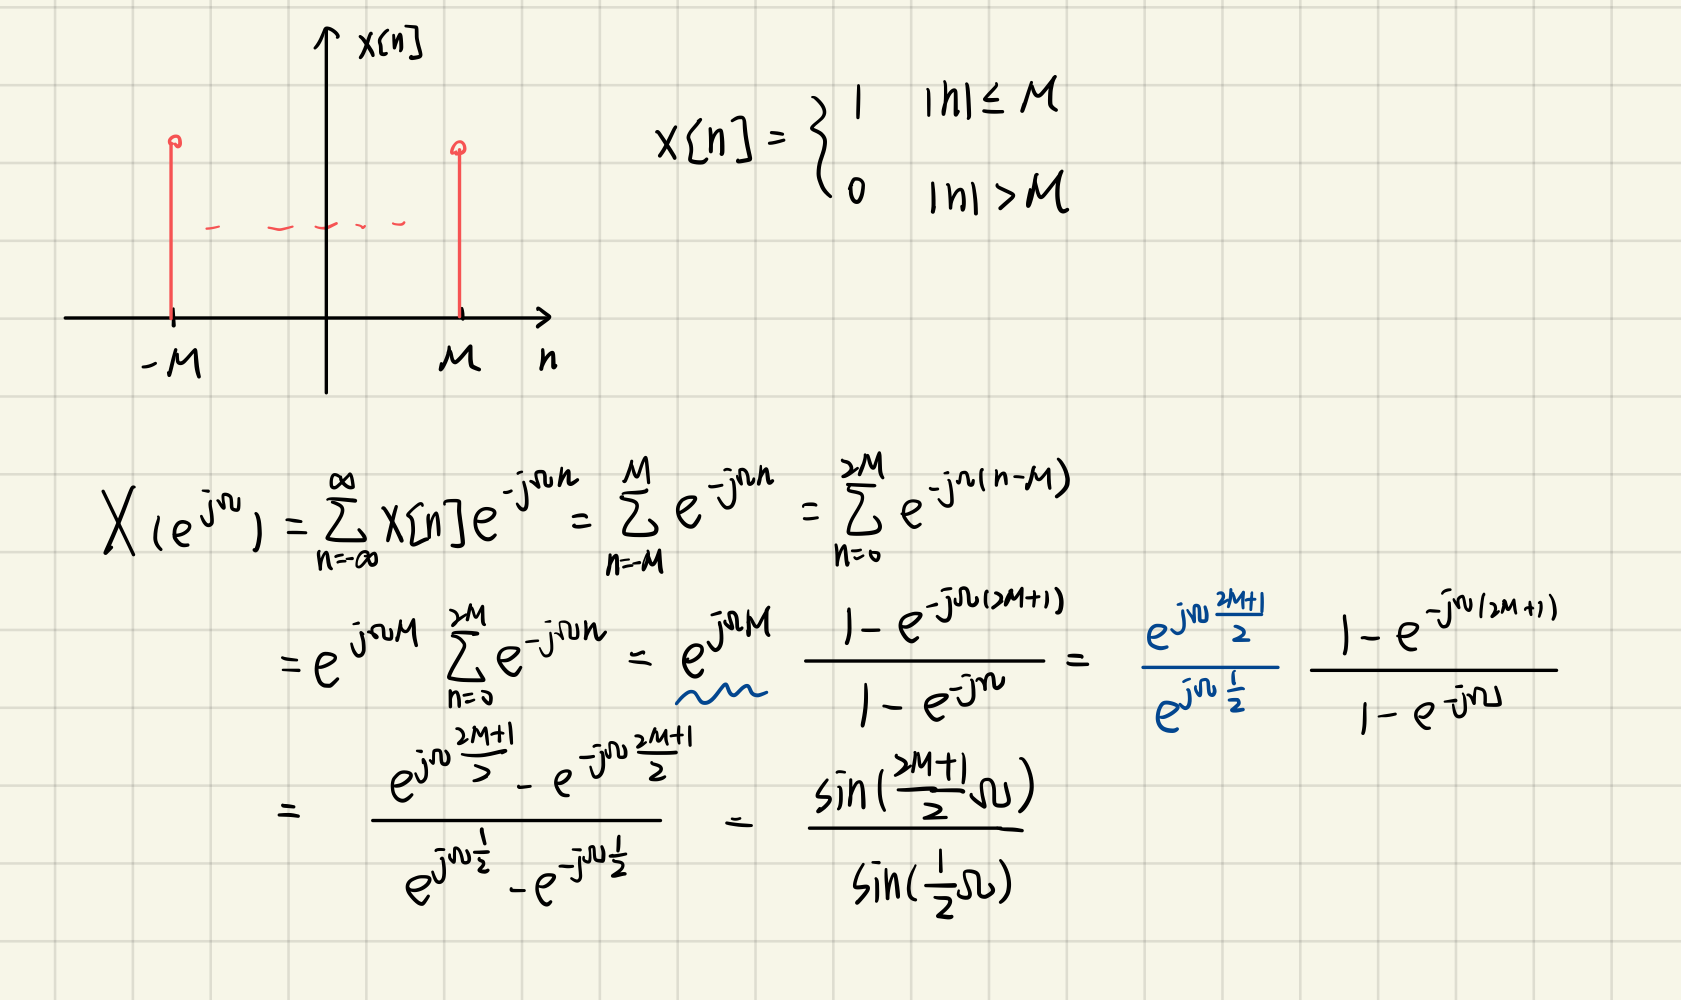 x[n]
x[n] = { 1 |n| ≤ M
0 |n| > M
-M M n
X(e^{jΩ}) = \sum_{n=-∞}^{∞} x[n] e^{-jΩn} = \sum_{n=-M}^{M} e^{-jΩn} = \sum_{n=0}^{2M} e^{-jΩ(n-M)}
= e^{jΩM} \sum_{n=0}^{2M} e^{-jΩn} = e^{jΩM} \frac{1 - e^{-jΩ(2M+1)}}{1 - e^{-jΩ}} = \frac{e^{jΩ\frac{2M+1}{2}}}{e^{jΩ\frac{1}{2}}} \frac{1 - e^{-jΩ(2M+1)}}{1 - e^{-jΩ}}
= \frac{e^{jΩ\frac{2M+1}{2}} - e^{-jΩ\frac{2M+1}{2}}}{e^{jΩ\frac{1}{2}} - e^{-jΩ\frac{1}{2}}} = \frac{sin(\frac{2M+1}{2}Ω)}{sin(\frac{1}{2}Ω)}